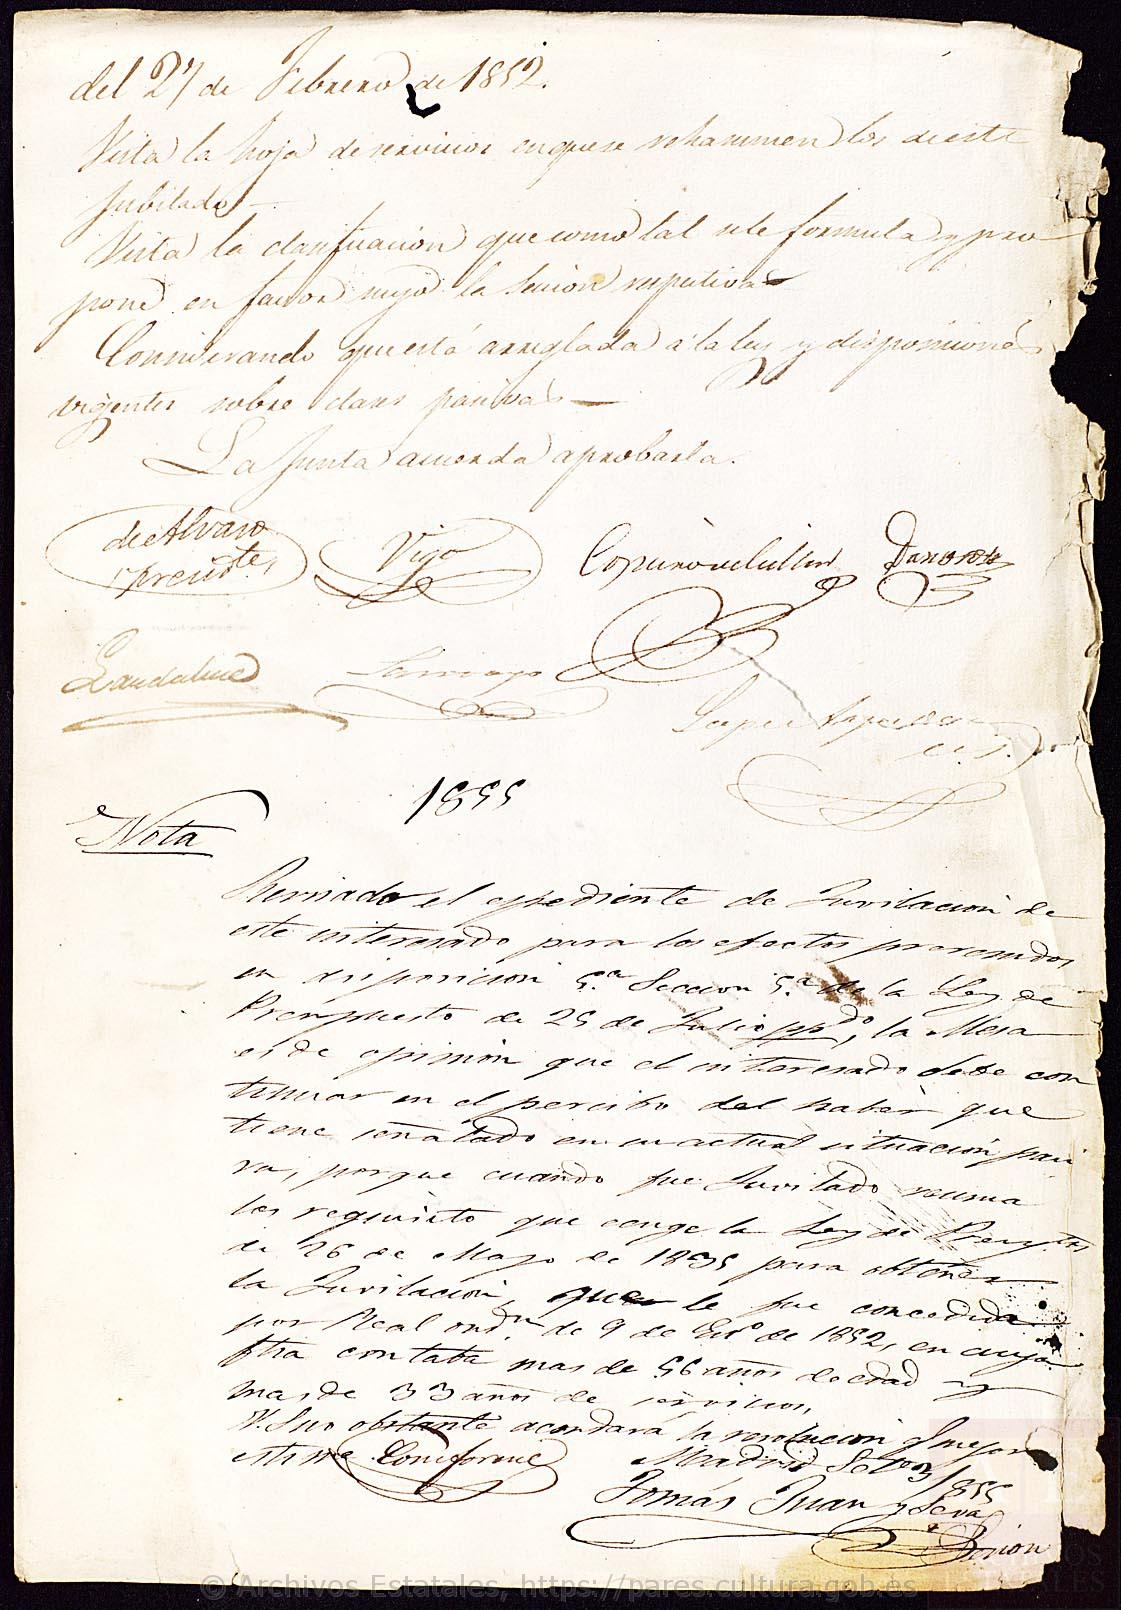 del 27 de Febrero de 1852.
Vista la hoja de servicios en que se rehasumen los de este
Jubilado
Vista la clasificación que como tal se le formula y pro
pone en favor suyo la Sección respectiva
Considerando que está arreglada a la ley y disposiciones
vigentes sobre clases pasivas
La Junta acuerda aprobarla.
de Alvaro Vigo
Preste,
Gandalune Samiego
1855
Nota
Revisado el espediente de Juvilacion de
este interesado para los efectos prevenidos
en disposicion 5.ª Seccion 5.ª de la Ley de
Presupuesto de 25 de Julio pp.do, la Mesa
es de opinión que el interesado debe con
tinuar en el percibo del haber que
tiene señalado en su actual situación pasi
va, porque cuando fue Juvilado reunia
los requisito que exige la Ley de Presup.tos
de 26 de Mayo de 1835 para obtener
la Juvilacion, que le fue concedida
por Real ord.n de 9 de En.o de 1852, en cuya
fha contaba mas de 56 años de edad y
mas de 33 años de servicios,
V.S. no obstante acordará la resolucion q mejor
estime Conforme Madrid 1855
Tomás Juan y Seva